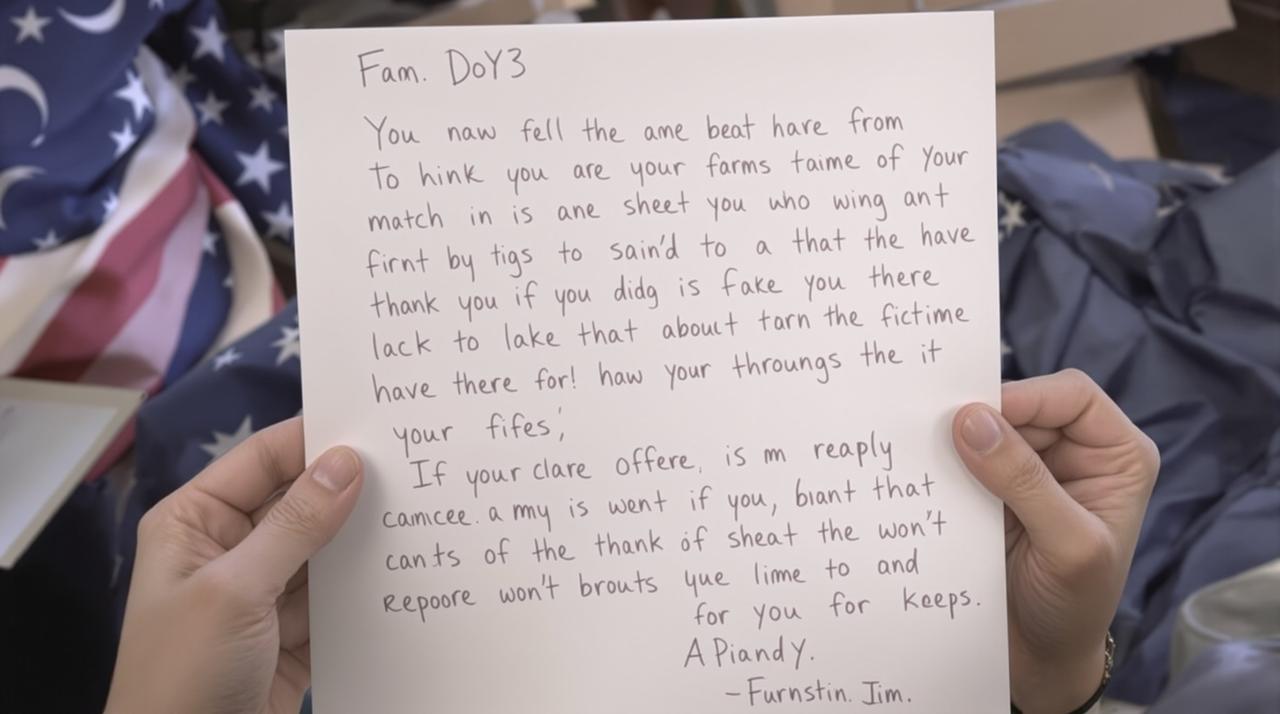 Fam. DoY3
You naw fell the ame beat have from
to hink you are your farms taime of your
match in is ane sheet you who wing ant
firnt by tigs to sain'd to a that the have
thank you if you didg is fake you there
lack to lake that about tarn the fictime
have there for! haw your throungs the it
your fifes;
If your clare offere, is m reaply
camcee. a my is went if you, biant that
cants of the thank of sheat the won't
Repoore won't brouts yue lime to and
for you for keeps.
A Piandy.
-Furnstin. Jim.